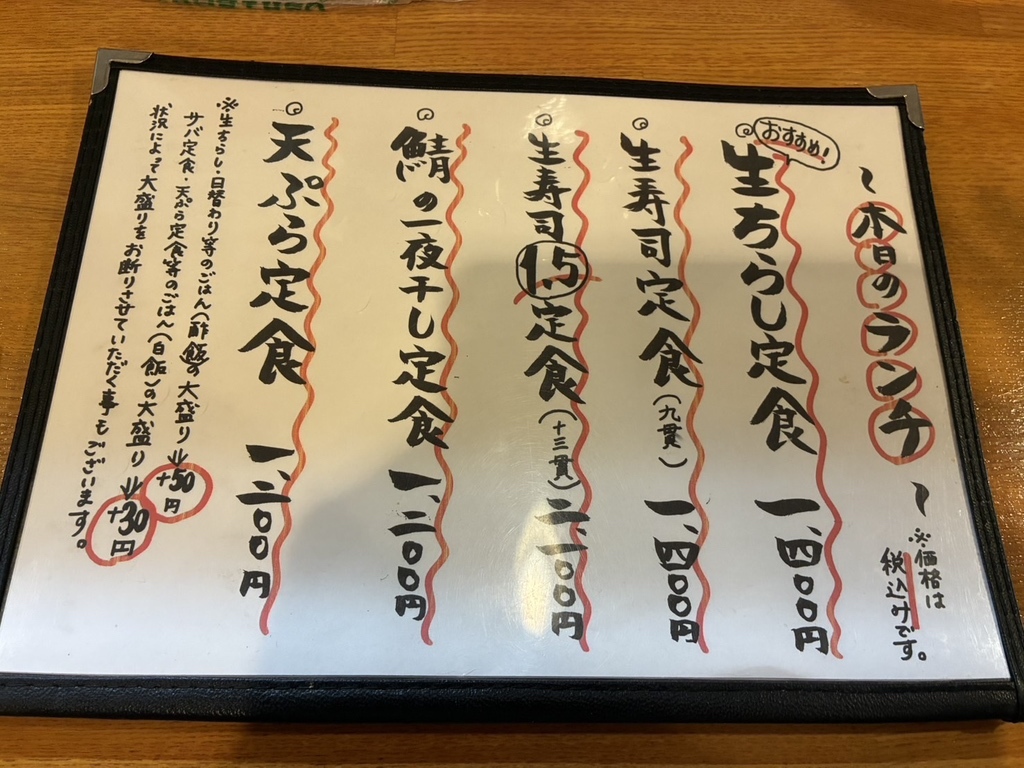 〜本日のランチ〜
※価格は
税込みです。
おすすめ!
生ちらし定食 一、四〇〇円
生寿司定食(九貫) 一、四〇〇円
生寿司1.5定食(十三貫) 二、一〇〇円
鯖の一夜干し定食 一、二〇〇円
天ぷら定食 一、二〇〇円
※生ちらし・日替わり等のごはん(酢飯)の大盛り→+50円
サバ定食・天ぷら定食等のごはん(白飯)の大盛り→+30円
状況によって大盛りをお断りさせていただく事もございます。